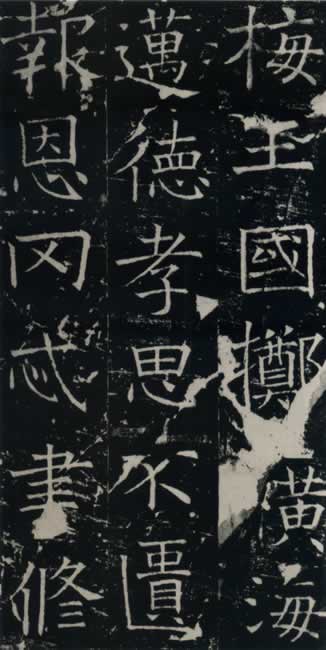 梅王國擲海
邁德孝思不匱
報恩罔忒書修